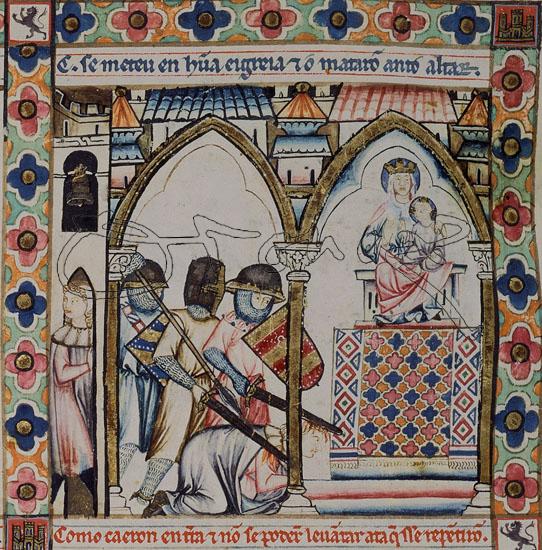 C. se meteu en hũa eigreia ⁊ o mataro᷈ anto altar.
Como caeron en t̃ra ⁊ nõ se poderõ leuãtar ata q̃ sse repẽtirõ.